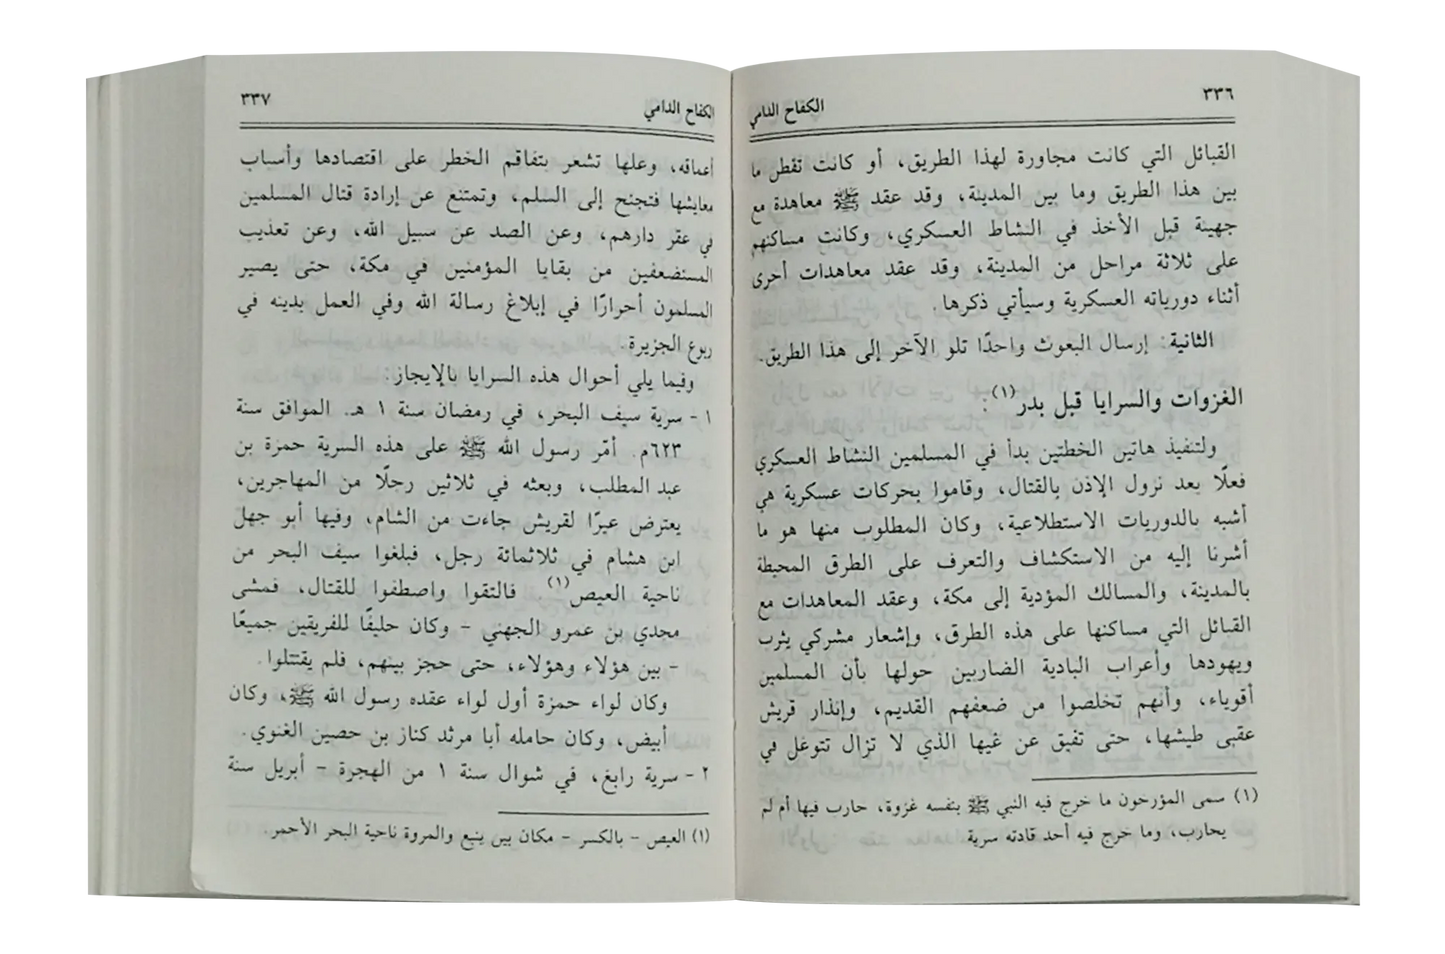 ٣٣٦ الكفاح الدامي
القبائل التي كانت مجاورة لهذا الطريق، أو كانت تقطن ما
بين هذا الطريق وما بين المدينة، وقد عقد ﷺ معاهدة مع
جهينة قبل الأخذ في النشاط العسكري، وكانت مساكنهم
على ثلاثة مراحل من المدينة، وقد عقد معاهدات أخرى
أثناء دورياته العسكرية وسيأتي ذكرها.
الثانية: إرسال البعوث واحدًا تلو الآخر إلى هذا الطريق.
الغزوات والسرايا قبل بدر(١):
ولتنفيذ هاتين الخطتين بدأ في المسلمين النشاط العسكري
فعلًا بعد نزول الإذن بالقتال، وقاموا بحركات عسكرية هي
أشبه بالدوريات الاستطلاعية، وكان المطلوب منها هو ما
أشرنا إليه من الاستكشاف والتعرف على الطرق المحيطة
بالمدينة، والمسالك المؤدية إلى مكة، وعقد المعاهدات مع
القبائل التي مساكنها على هذه الطرق، وإشعار مشركي يثرب
ويهودها وأعراب البادية الضاربين حولها بأن المسلمين
أقوياء، وأنهم تخلصوا من ضعفهم القديم، وإنذار قريش
عقبى طيشها، حتى تفيق عن غيها الذي لا تزال تتوغل في
(١) سمى المؤرخون ما خرج فيه النبي ﷺ بنفسه غزوة، حارب فيها أم لم
يحارب، وما خرج فيه أحد قادته سرية
الكفاح الدامي ٣٣٧
أعماقه، وعلها تشعر بتفاقم الخطر على اقتصادها وأسباب
معايشها فتجنح إلى السلم، وتمتنع عن إرادة قتال المسلمين
في عقر دارهم، وعن الصد عن سبيل الله، وعن تعذيب
المستضعفين من بقايا المؤمنين في مكة، حتى يصير
المسلمون أحرارًا في إبلاغ رسالة الله وفي العمل بدينه في
ربوع الجزيرة.
وفيما يلي أحوال هذه السرايا بالإيجاز:
١ - سرية سيف البحر، في رمضان سنة ١ هـ. الموافق سنة
٦٢٣م. أمّر رسول الله ﷺ على هذه السرية حمزة بن
عبد المطلب، وبعثه في ثلاثين رجلًا من المهاجرين،
يعترض عيرًا لقريش جاءت من الشام، وفيها أبو جهل
ابن هشام في ثلاثمائة رجل، فبلغوا سيف البحر من
ناحية العيص(١). فالتقوا واصطفوا للقتال، فمشى
مجدي بن عمرو الجهني - وكان حليفًا للفريقين جميعًا
- بين هؤلاء وهؤلاء، حتى حجز بينهم، فلم يقتتلوا.
وكان لواء حمزة أول لواء عقده رسول الله ﷺ، وكان
أبيض، وكان حامله أبا مرثد كناز بن حصين الغنوي.
٢ - سرية رابغ، في شوال سنة ١ من الهجرة - أبريل سنة
(١) العيص - بالكسر - مكان بين ينبع والمروة ناحية البحر الأحمر.